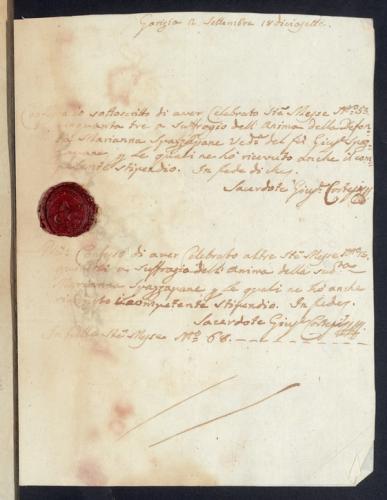 Gorizia 12 Settembre 18diciasette.
Confesso io sottoscritto di aver Celebrato Ste Messe Nro 53.
cinquanta tre a suffragio dell'Anima della Defon-
ta Marianna Spazzapane Veda del fu Giuse Spaz-
apane, e le quali ne hò ricevuto anche il com-
petente Stipendio. In fede di che.
Sacerdote Giuse Cortej
Più Confesso di aver Celebrato altre Ste Messe Nro 15.
quindici a suffragio dell'Anima della sudta
Marianna Spazzapane, e le quali ne hò anche
ricevuto il competente Stipendio. In fede.
Sacerdote Giuse Cortej
In tutto Ste Messe Nro 68.